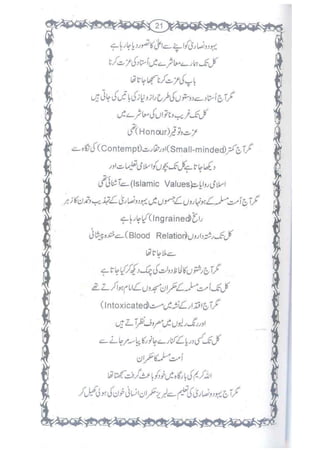 21
یہود و نصاریٰ کو اپنے سے اعلیٰ کا تصور دیا جا رہا ہے
کل تک ہمارے معاشرے میں اُستاد کی عزت کرنا
باپ کی عزت کرنا سمجھا جاتا تھا
مگر آج اُستاد سے دوستوں کی طرح راز و نیاز کی باتیں کی جاتی ہیں
کل تک غریب و ناتواں کی معاشرے میں
عزت و توقیر (Honour) تھی
مگر آج کمتر (Small-minded) اور حقارت (Contempt) کی نگاہ سے
دیکھا جاتا ہے کل تک بچوں کو اسلامی تعلیمات اور
اسلامی روایات (Islamic Values) سے آشنائی تھی
مگر آج اُمت مسلمہ کے ہونہاروں کے جسموں میں یہود و نصاریٰ کے تہذیب و تمدن کا زہر
راسخ (Ingrained) کیا جا رہا ہے
کل تک رشتہ داروں (Blood Relation) سے خندہ پیشانی
سے ملا جاتا تھا
مگر آج رشتوں کا لحاظ دولت کی چمک دیکھ کر کیا جاتا ہے
کل تک اُمت مسلمہ کے حکمران مسجدوں کے امام ہوا کرتے تھے
مگر آج اقتدار کے نشہ میں مست (Intoxicated)
اور رنگ رلیوں میں مصروف نظر آتے ہیں
کل تک کسی دریا کے کنارے جانور کا پیاسہ مر جانے سے
اُمت مسلمہ کا حکمران
اللہ کریم کی بارگاہ میں خود کو باعث گرفت سمجھتا تھا
مگر آج یہود و نصاریٰ کی تعلیم سے لبریز حکمران انسانی خون کی ہولی کھیل کر